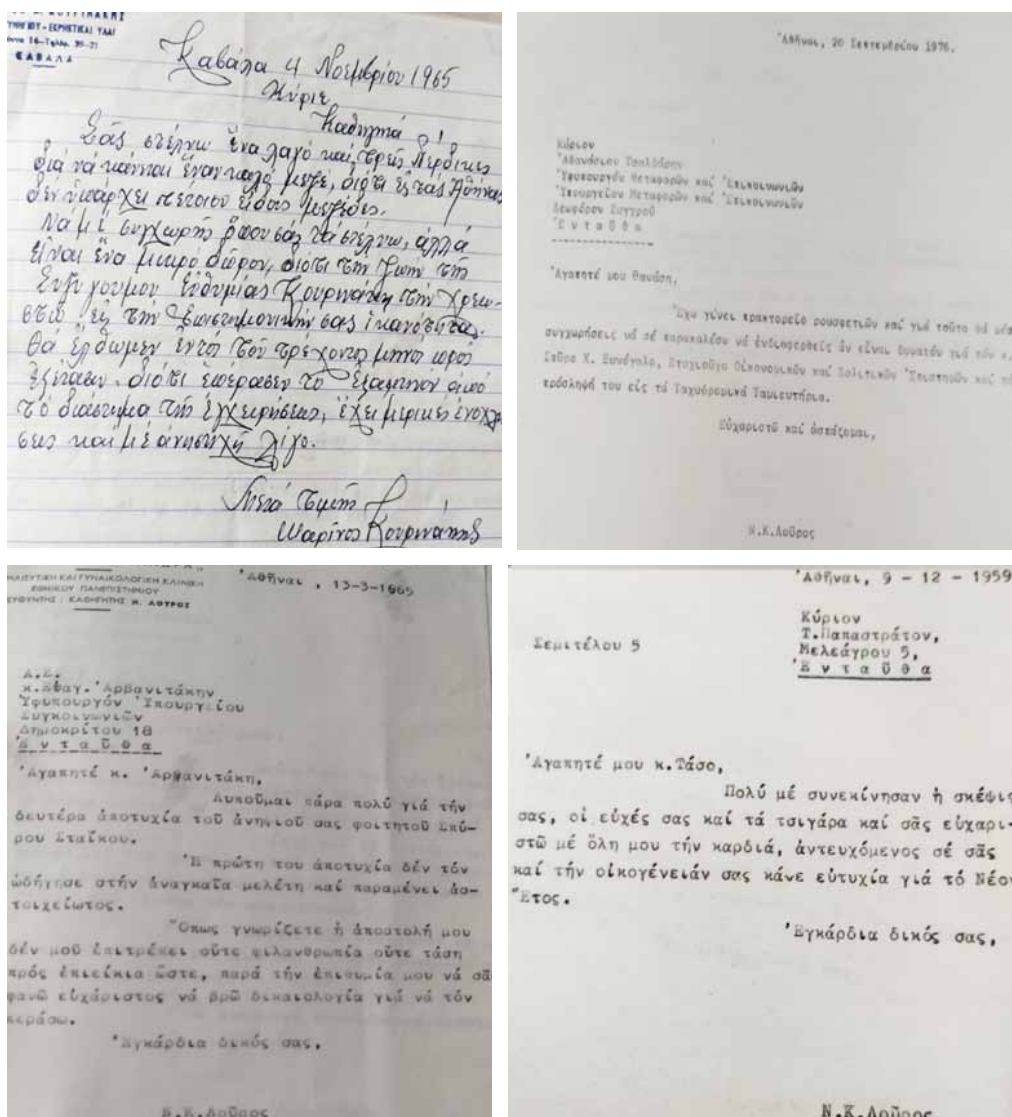 ΚΑΒΑΛΑ
Καβάλα 4 Νοεμβρίου 1965
Κύριε
Καθηγητά !
Σᾶς στέλνω ἕνα λαγό καί τρεῖς Πέρδικες
διά νά κάνητε ἕναν καλό μεζέ, διότι εἰς τάς Ἀθήνας
δέν ὑπάρχει τέτοιου εἴδους μεζέδες.
Νά μέ συγχωρῆς ὅπου σας τά στέλνω, ἀλλά
εἶναι ἕνα μικρό δῶρον, διότι τήν ζωήν τῆς
Συζύγου μου Εὐθυμίας Κουρινάκη τήν χρεω-
στῶ εἰς τήν ἐπιστημονικήν σας ἱκανότητας.
Θά ἔλθωμεν ἐντός τοῦ τρέχοντος μηνός πρός
ἐξέτασιν. διότι ἐπέρασεν τό ἑξάμηνον ἀπό
τό διάστημα τῆς ἐγχειρήσεως, ἔχει μερικές ἐνοχλή
σεις καί μέ ἀνησυχῆ λίγο.
Μετά τιμῆς
Μαρίνος Κουρινάκης
Ἀθῆναι, 20 Σεπτεμβρίου 1976.
Κύριον
Ἀθανάσιον Τσαλδάρην
Ὑφυπουργόν Μεταφορῶν καί Ἐπικοινωνιῶν
Ὑπουργεῖον Μεταφορῶν καί Ἐπικοινωνιῶν
Λεωφόρον Συγγροῦ
Ἐνταῦθα
Ἀγαπητέ μου Θανάση,
Ἔχω γίνει πρακτορεῖο ρουσφετιῶν καί γιά τοῦτο θά μέ
συγχωρήσεις νά σέ παρακαλέσω νά ἐνδιαφερθεῖς ἄν εἶναι δυνατόν γιά τόν κ.
Σταῦρο Χ. Συνόγαλο, Πτυχιοῦχο Οἰκονομικῶν καί Πολιτικῶν Ἐπιστημῶν καί τή
πρόσληψή του εἰς τά Ταχυδρομικά Ταμιευτήρια.
Εὐχαριστῶ καί ἀσπάζομαι,
Ν.Κ.Λοῦρος
ΜΑΙΕΥΤΙΚΗ ΚΑΙ ΓΥΝΑΙΚΟΛΟΓΙΚΗ ΚΛΙΝΙΚΗ
ΕΘΝΙΚΟΥ ΠΑΝΕΠΙΣΤΗΜΙΟΥ
ΔΙΕΥΘΥΝΤΗΣ : ΚΑΘΗΓΗΤΗΣ Ν. ΛΟΥΡΟΣ
Ἀθῆναι , 13-3-1965
Α.Ε.
κ.Εὐαγ. Ἀρβανιτάκην
Ὑφυπουργόν Ὑπουργείου
Συγκοινωνιῶν
Δημοκρίτου 18
Ἐνταῦθα
Ἀγαπητέ κ. Ἀρβανιτάκη,
Λυποῦμαι πάρα πολύ γιά τήν
δευτέρα ἀποτυχία τοῦ ἀνηψιοῦ σας φοιτητοῦ Σπύ-
ρου Σταΐκου.
Ἡ πρώτη του ἀποτυχία δέν τόν
ὡδήγησε στήν ἀναγκαῖα μελέτη καί παραμένει ἀσ-
τοιχείωτος.
Ὅπως γνωρίζετε ἡ ἀποστολή μου
δέν μοῦ ἐπιτρέπει οὔτε φιλανθρωπία οὔτε τάση
πρός ἐπιείκια ὥστε, παρά τήν ἐπιθυμία μου νά σᾶ
φανῶ εὐχάριστος νά βρῶ δικαιολογία γιά νά τόν
περάσω.
Ἐγκάρδια δικός σας,
Ν.Κ.Λοῦρος
Ἀθῆναι, 9 - 12 - 1959
Σεμιτέλου 5
Κύριον
Τ.Παπαστράτον,
Μελεάγρου 5,
Ἐνταῦθα
Ἀγαπητέ μου κ.Τάσο,
Πολύ μέ συνεκίνησαν ἡ σκέψις
σας, οἱ εὐχές σας καί τά τσιγάρα καί σᾶς εὐχαρι-
στῶ μέ ὅλη μου τήν καρδιά, ἀντευχόμενος σέ σᾶς
καί τήν οἰκογένειάν σας κάνε εὐτυχία γιά τό Νέον
Ἔτος.
Ἐγκάρδια δικός σας,
Ν.Κ.Λοῦρος